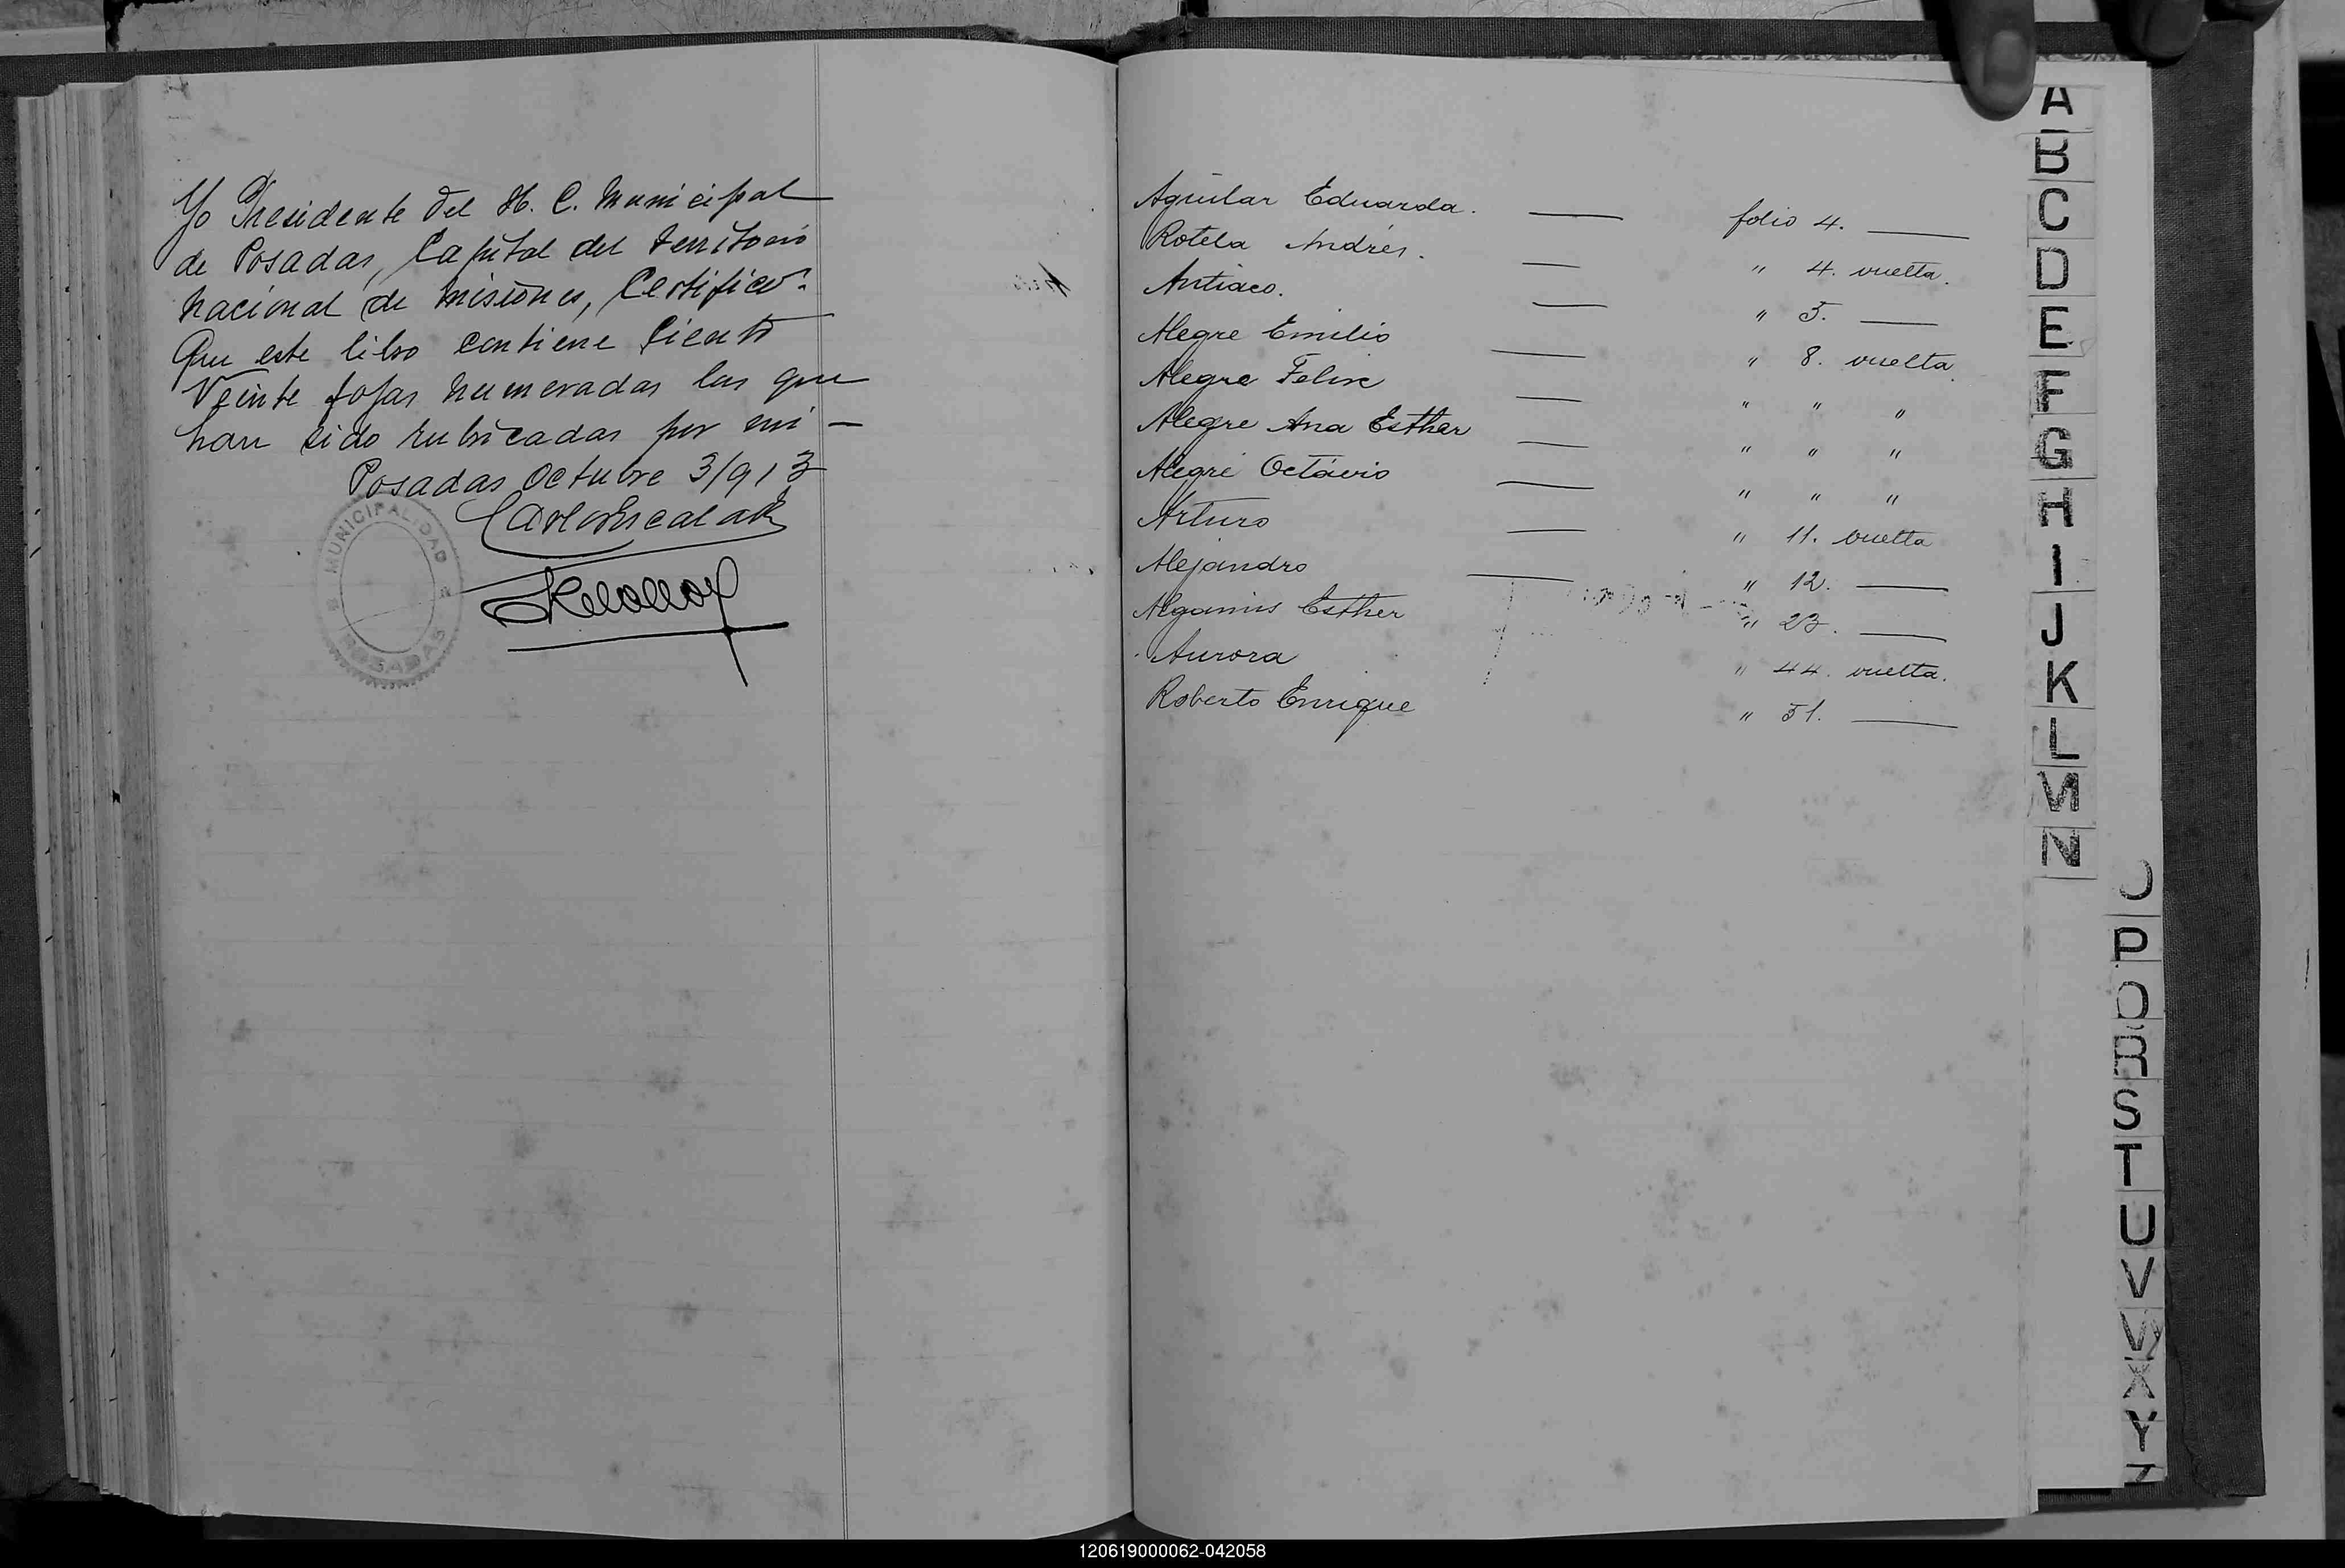 Yo Presidente del H. C. Municipal
de Posadas, Capital del territorio
nacional de misiones, Certifico:
Que este libro contiene Ciento
Veinte fojas numeradas las que
han sido rubricadas por mi —
Posadas Octubre 3/913
MUNICIPALIDAD
POSADAS
Aguilar Eduarda. — folio 4. —
Rotela Andrés. — " 4. vuelta.
— " 5. —
Alegre Emilio — " 8. vuelta.
Alegre Felix — " " "
Alegre Ana Esther — " " "
Alegre Octavio — " " "
Arturo — " 11. vuelta
Alejandro — " 12. —
Esther " 23. —
Aurora " 44. vuelta.
Roberto Enrique " 51. —
A
B
C
D
E
F
G
H
I
J
K
L
M
N
O
P
Q
R
S
T
U
V
W
X
Y
Z
120619000062-042058